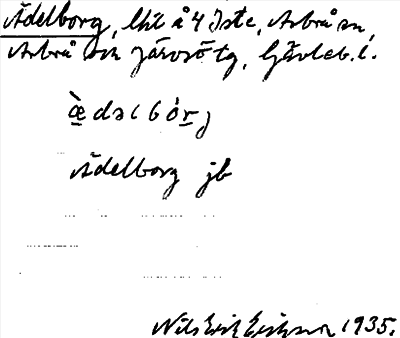 Ädelborg, lht å 4 Iste, Arbrå sn,
Arbrå och Järvsö tg, Gävleb. l.
æ̀dəlbór̠j
Ädelborg jb
Nils Erik Eriksson 1935.